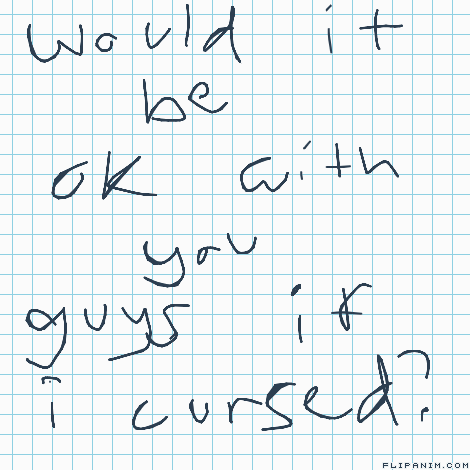 would it
be
ok with
you
guys if
i cursed?
FLIPANIM.COM